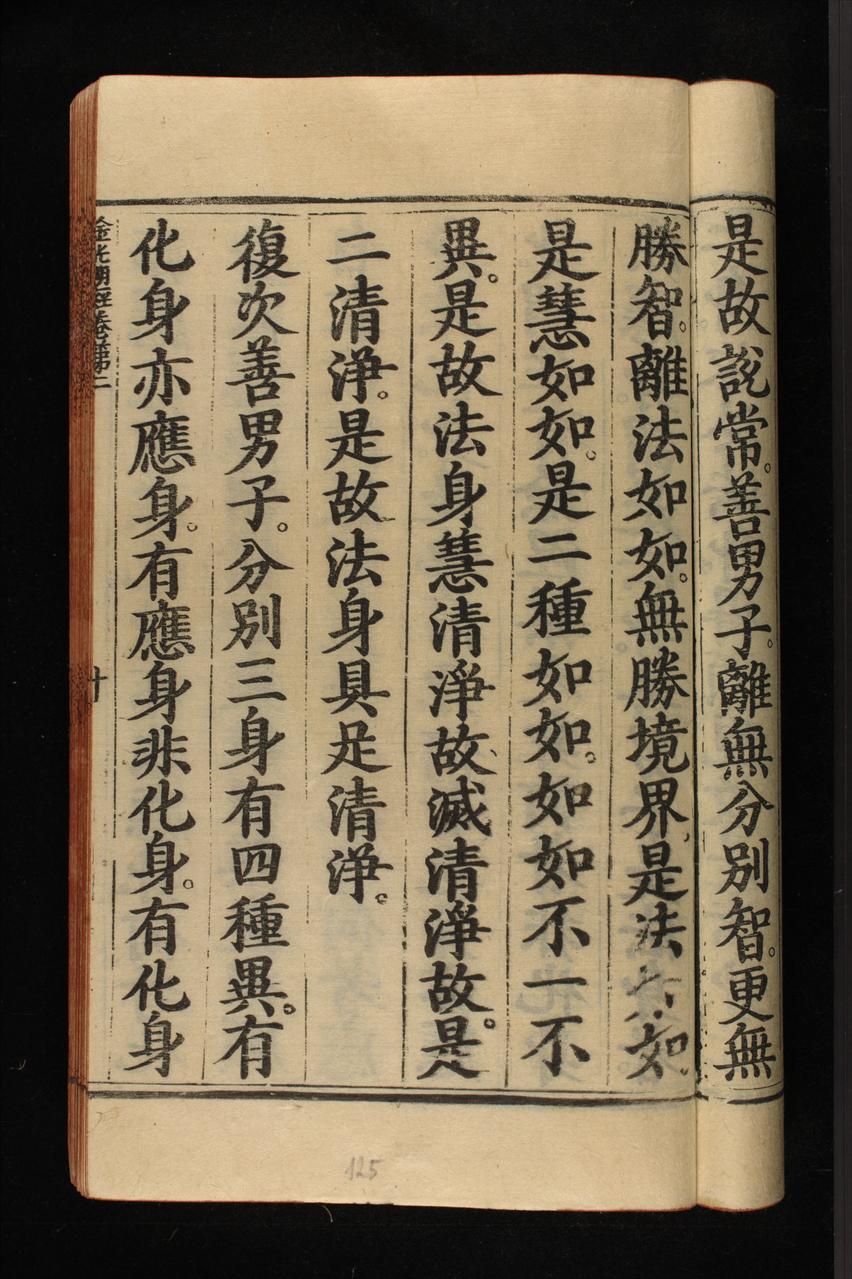 是故說常。善男子。離無分別智。更無
勝智。離法如如。無勝境界。是法如如。
是慧如如。是二種如如。如如不一不
異。是故法身慧清淨故、滅清淨故。是
二清淨。是故法身具足清淨。
復次善男子。分別三身有四種異。有
化身亦應身。有應身非化身。有化身
金光明經卷第二
十
125